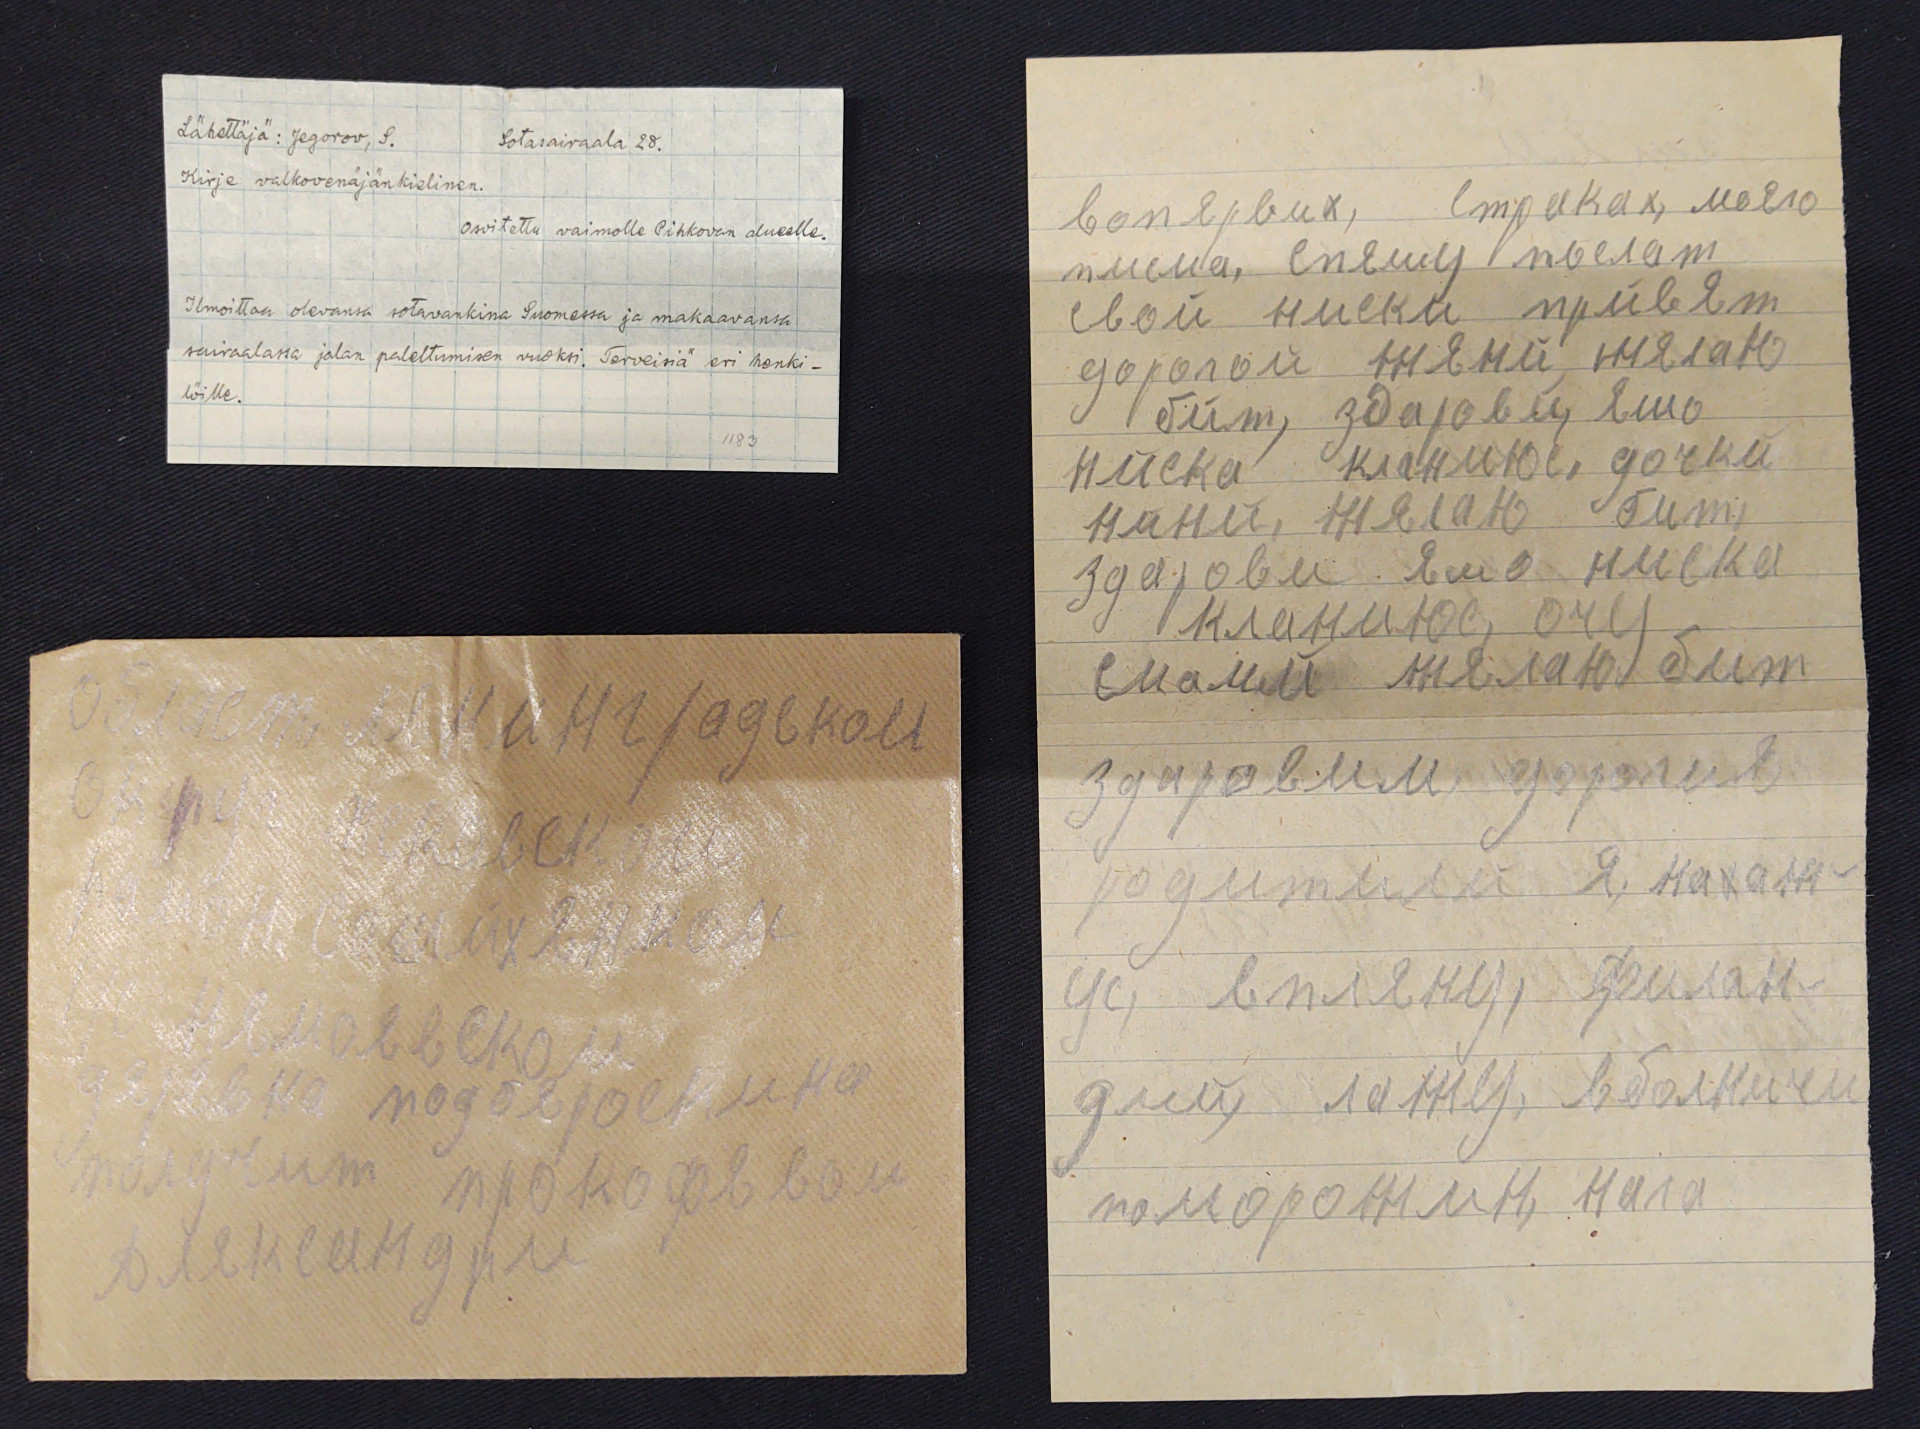 Lähettäjä: Jegorov, S. Sotasairaala 28.
Kirje valkovenäjänkielinen.
Osoitettu vaimolle Pihkovan alueelle.
Ilmoittaa olevansa sotavankina Suomessa ja makaavansa
sairaalassa jalan paleltumisen vuoksi. Terveisiä eri henki-
löille.
1183
область ленинградском
Округ
район
деревна подберoскина
получит прокофьвом
Александри
вопервих, страках, моего
писма, спешу послат
свой ниски привет
дорогой жени, желаю
бит, здаровй, ешо
ниска кланиюс, дочки
нани, желаю бит,
здарови ешо ниска
кланиюс, очу
смамй желаю бит
здаровим дорогие
родитили Я, нахаж-
ус, вплену, Филан-
дий, лажу, вболничи
поморожин, нага